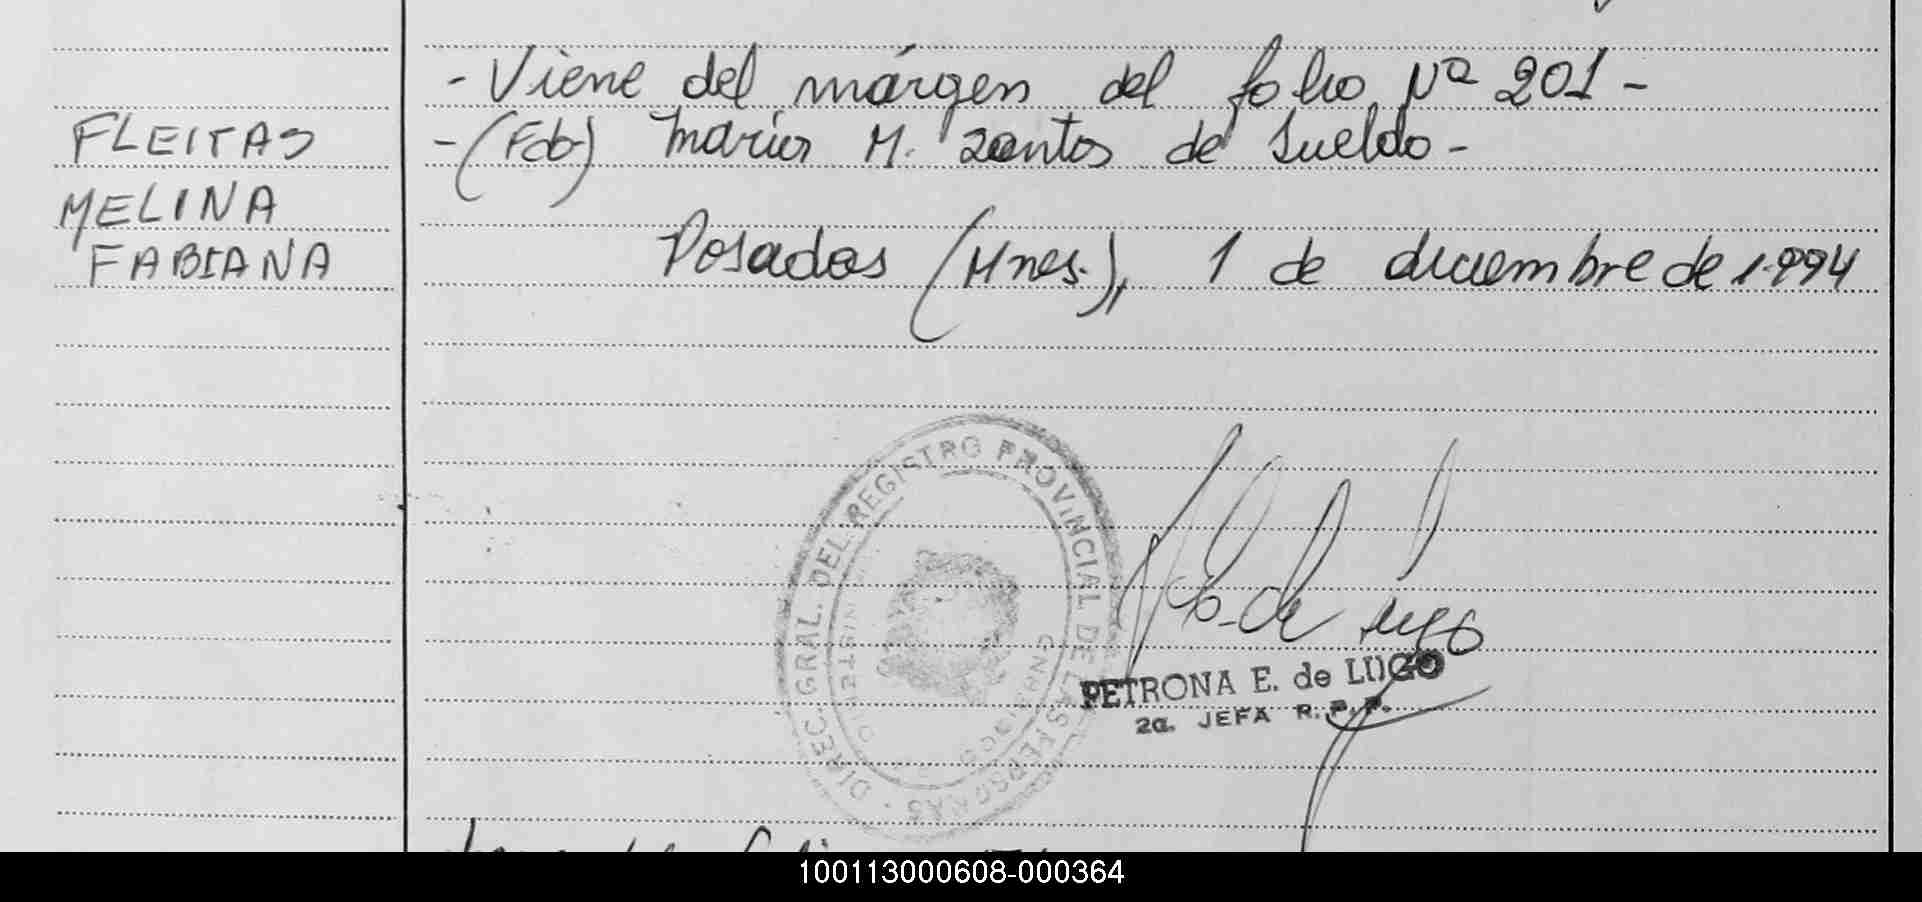 - Viene del márgen del folio Nº 201 -
- (Fdo) Maria M. Zantos de Sueldo -
Posadas (Mnes.), 1 de diciembre de 1.994
FLEITAS
MELINA
FABIANA
DIREC. GRAL. DEL REGISTRO PROVINCIAL DE LAS PERSONAS
de Lugo
PETRONA E. de LUGO
2a. JEFA R.P.P.
100113000608-000364